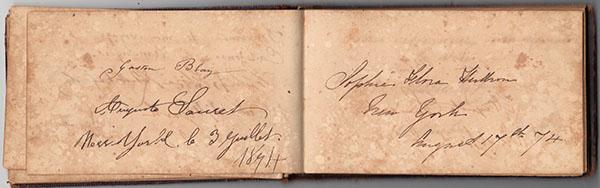 Gaston
Auguste Sauret
New York le 3 Juillet
1874
Sophie Flora Heilbron
New York
August 17th 74